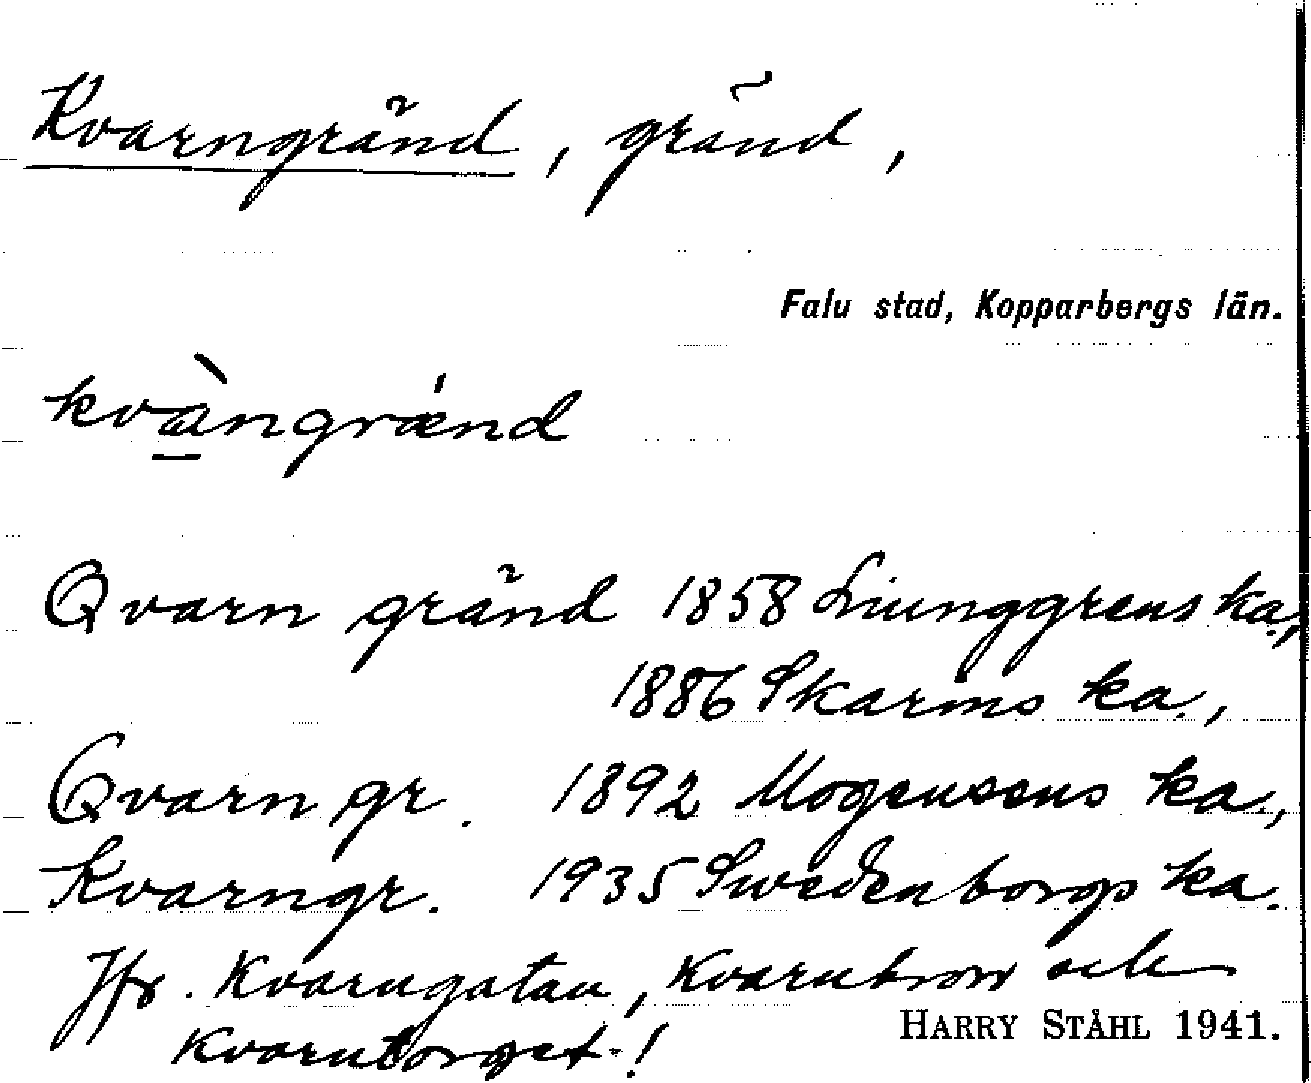 Kvarngränd, gränd,
Falu stad, Kopparbergs län.
kvàngrænd
Qvarn gränd 1858 Liunggrens ka.,
1886 Skarins ka.,
Qvarn gr. 1892 Mogensens ka.,
Kvarngr. 1935 Swedenborgs ka.
Jfr. Kvarngatan, Kvarnbron och
Kvarntorget!
HARRY STÅHL 1941.